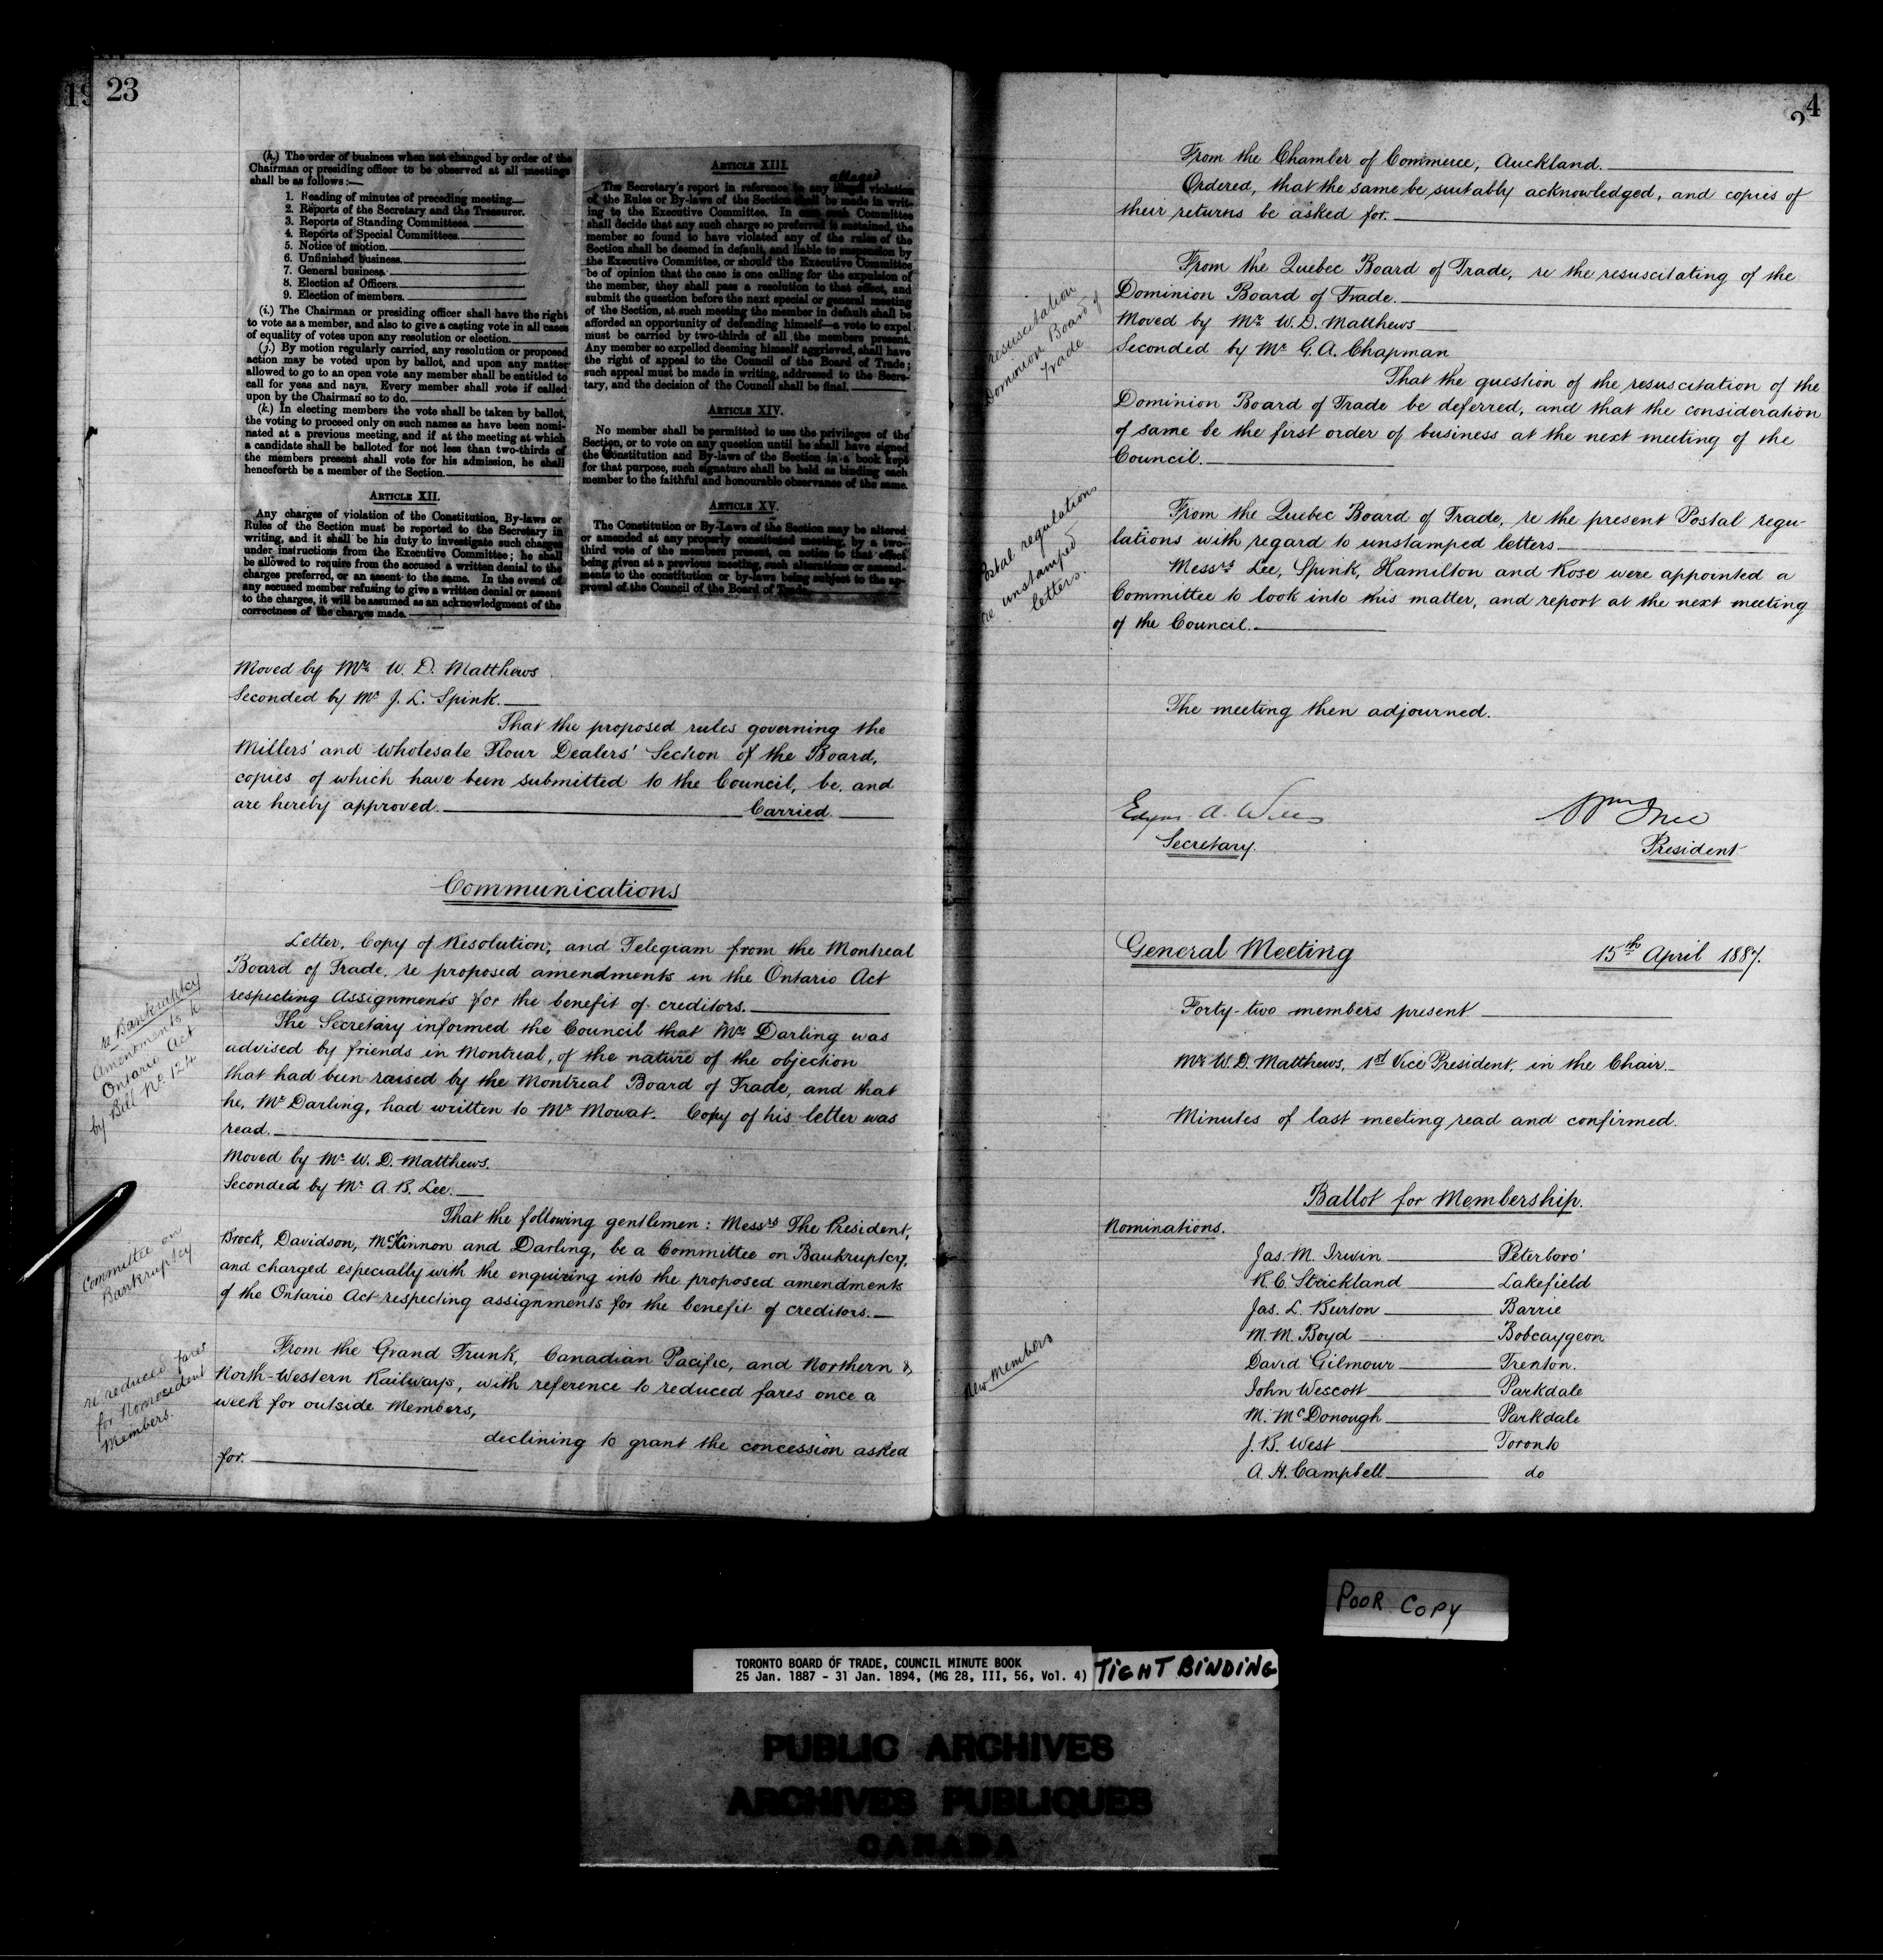 19
23
(h.) The order of business when not changed by order of the
Chairman or presiding officer to be observed at all meetings
shall be as follows:—
1. Reading of minutes of preceding meeting
2. Reports of the Secretary and the Treasurer.
3. Reports of Standing Committees.
4. Reports of Special Committees
5. Notice of motion.
6. Unfinished business
7. General business
8. Election of Officers
9. Election of members.
(i.) The Chairman or presiding officer shall have the right
to vote as a member, and also to give a casting vote in all cases
of equality of votes upon any resolution or election.
(j.) By motion regularly carried, any resolution or proposed
action may be voted upon by ballot, and upon any matter
allowed to go to an open vote any member shall be entitled to
call for yeas and nays. Every member shall vote if called
upon by the Chairman so to do.
(k.) In electing members the vote shall be taken by ballot,
the voting to proceed only on such names as have been nomi-
nated at a previous meeting, and if at the meeting at which
a candidate shall be balloted for not less than two-thirds of
the members present shall vote for his admission, he shall
henceforth be a member of the Section.
ARTICLE XII.
Any charges of violation of the Constitution, By-laws or
Rules of the Section must be reported to the Secretary in
writing, and it shall be his duty to investigate such charges
under instructions from the Executive Committee; he shall
be allowed to require from the accused a written denial to the
charges preferred, or an assent to the same. In the event of
any accused member refusing to give a written denial or assent
to the charges, it will be assumed as an acknowledgment of the
correctness of the charges made.
ARTICLE XIII.
alleged
The Secretary's report in reference to any illegal violation
of the Rules or By-laws of the Section shall be made in writ-
ing to the Executive Committee. In case such Committee
shall decide that any such charge so preferred is sustained, the
member so found to have violated any of the rules of the
Section shall be deemed in default, and liable to suspension by
the Executive Committee, or should the Executive Committee
be of opinion that the case is one calling for the expulsion of
the member, they shall pass a resolution to that effect, and
submit the question before the next special or general meeting
of the Section, at such meeting the member in default shall be
afforded an opportunity of defending himself—a vote to expel
must be carried by two-thirds of all the members present.
Any member so expelled deeming himself aggrieved, shall have
the right of appeal to the Council of the Board of Trade;
such appeal must be made in writing, addressed to the Secre-
tary, and the decision of the Council shall be final.
ARTICLE XIV.
No member shall be permitted to use the privileges of the
Section, or to vote on any question until he shall have signed
the Constitution and By-laws of the Section in a book kept
for that purpose, such signature shall be held as binding each
member to the faithful and honourable observance of the same.
ARTICLE XV.
The Constitution or By-Laws of the Section may be altered
or amended at any properly constituted meeting, by a two-
third vote of the members present, on notice to that effect
being given at a previous meeting, such alterations or amend-
ments to the constitution or by-laws being subject to the ap-
proval of the Council of the Board of Trade.
Moved by Mr. W. D. Matthews
Seconded by Mr. J. L. Spink.
That the proposed rules governing the
Millers' and Wholesale Flour Dealers' Section of the Board,
copies of which have been submitted to the Council, be, and
are hereby approved. Carried.
Communications
Letter, Copy of Resolution, and Telegram from the Montreal
Board of Trade, re proposed amendments in the Ontario Act
respecting Assignments for the benefit of creditors.
re Bankruptcy
Amendments to
Ontario Act
by Bill No. 124
The Secretary informed the Council that Mr. Darling was
advised by friends in Montreal, of the nature of the objection
that had been raised by the Montreal Board of Trade, and that
he, Mr Darling, had written to Mr Mowat. Copy of his letter was
read.
Moved by Mr. W. D. Matthews.
Seconded by Mr. A. B. Lee.
Committee on
Bankruptcy
That the following gentlemen: Messrs The President,
Brock, Davidson, McKinnon and Darling, be a Committee on Bankruptcy,
and charged especially with the enquiring into the proposed amendments
of the Ontario Act respecting assignments for the benefit of creditors.
re reduced fares
for Nonresident
Members.
From the Grand Trunk, Canadian Pacific, and Northern &
North-Western Railways, with reference to reduced fares once a
week for outside Members,
declining to grant the concession asked
for.
4
2
From the Chamber of Commerce, Auckland.
Ordered, that the same be suitably acknowledged, and copies of
their returns be asked for.
resuscitation
Dominion Board of
Trade
From the Quebec Board of Trade, re the resuscitating of the
Dominion Board of Trade.
Moved by Mr. W. D. Matthews
Seconded by Mr G. A. Chapman
That the question of the resuscitation of the
Dominion Board of Trade be deferred, and that the consideration
of same be the first order of business at the next meeting of the
Council.
Postal regulations
re unstamped
letters.
From the Quebec Board of Trade, re the present Postal regu-
lations with regard to unstamped letters
Messrs Lee, Spink, Hamilton and Rose were appointed a
Committee to look into this matter, and report at the next meeting
of the Council.
The meeting then adjourned.
Edgar A. Wills
Secretary.
Wm Ince
President
General Meeting 15th April 1887.
Forty-two members present
Mr W. D. Matthews, 1st Vice President, in the Chair.
Minutes of last meeting read and confirmed.
Ballot for Membership.
Nominations.
New Members
Jas. M. Irwin Peterboro'
R. C. Strickland Lakefield
Jas. L. Burton Barrie
M. M. Boyd Bobcaygeon
David Gilmour Trenton.
John Wescott Parkdale
M. McDonough Parkdale
J. B. West Toronto
A. H. Campbell do
POOR COPY
TORONTO BOARD OF TRADE, COUNCIL MINUTE BOOK
25 Jan. 1887 - 31 Jan. 1894, (MG 28, III, 56, Vol. 4)
TIGHT BINDING
PUBLIC ARCHIVES
ARCHIVES PUBLIQUES
CANADA